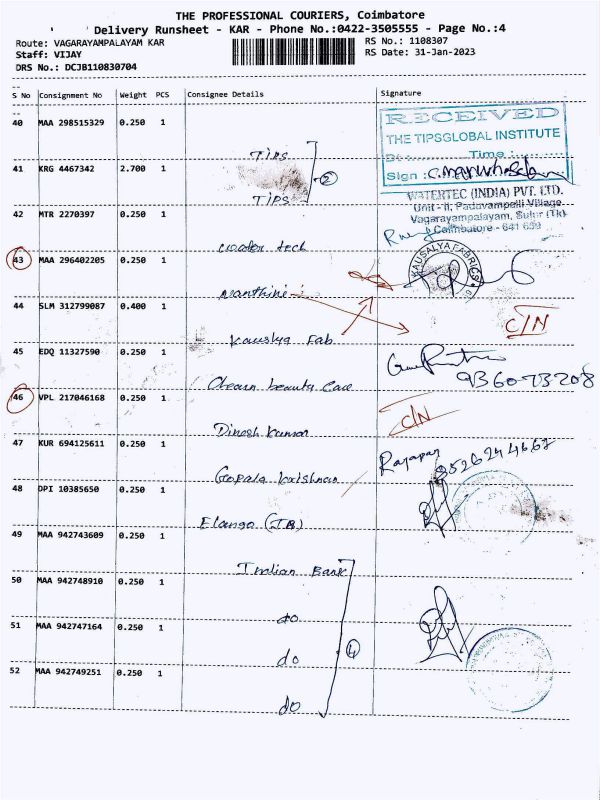 THE PROFESSIONAL COURIERS, Coimbatore
Delivery Runsheet - KAR - Phone No.:0422-3505555 - Page No.:4
Route: VAGARAYAMPALAYAM KAR
RS No.: 1108307
Staff: VIJAY
RS Date: 31-Jan-2023
DRS No.: DCJB110830704
S No Consignment No Weight PCS Consignee Details Signature
40 MAA 298515329 0.250 1
TIPS
RECEIVED
THE TIPSGLOBAL INSTITUTE
Time :
Sign :
41 KRG 4467342 2.700 1
TIPS
2
WATERTEC (INDIA) PVT. LTD.
Unit - II, Paduvampalli Village
Vagarayampalayam, Sulur (Tk)
Coimbatore - 641 659
42 MTR 2270397 0.250 1
43 MAA 296402205 0.250 1
KAUSALYA FABRICS
44 SLM 312799087 0.400 1
Kauslya Fab
C/N
45 EDQ 11327590 0.250 1
beauty Care
9360-73208
46 VPL 217046168 0.250 1
Dinesh Kumar
C/N
47 KUR 694125611 0.250 1
Gopala krishnan
48 DPI 10385650 0.250 1
Elango (IB)
49 MAA 942743609 0.250 1
Indian Bank
50 MAA 942748910 0.250 1
do
51 MAA 942747164 0.250 1
do
4
52 MAA 942749251 0.250 1
do